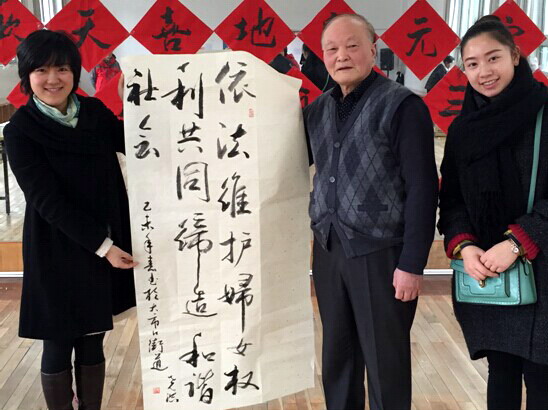 欢天喜地
元宵
三
依法维护婦女权
利共同缔造和谐
社会
乙未年春书於大市口街道